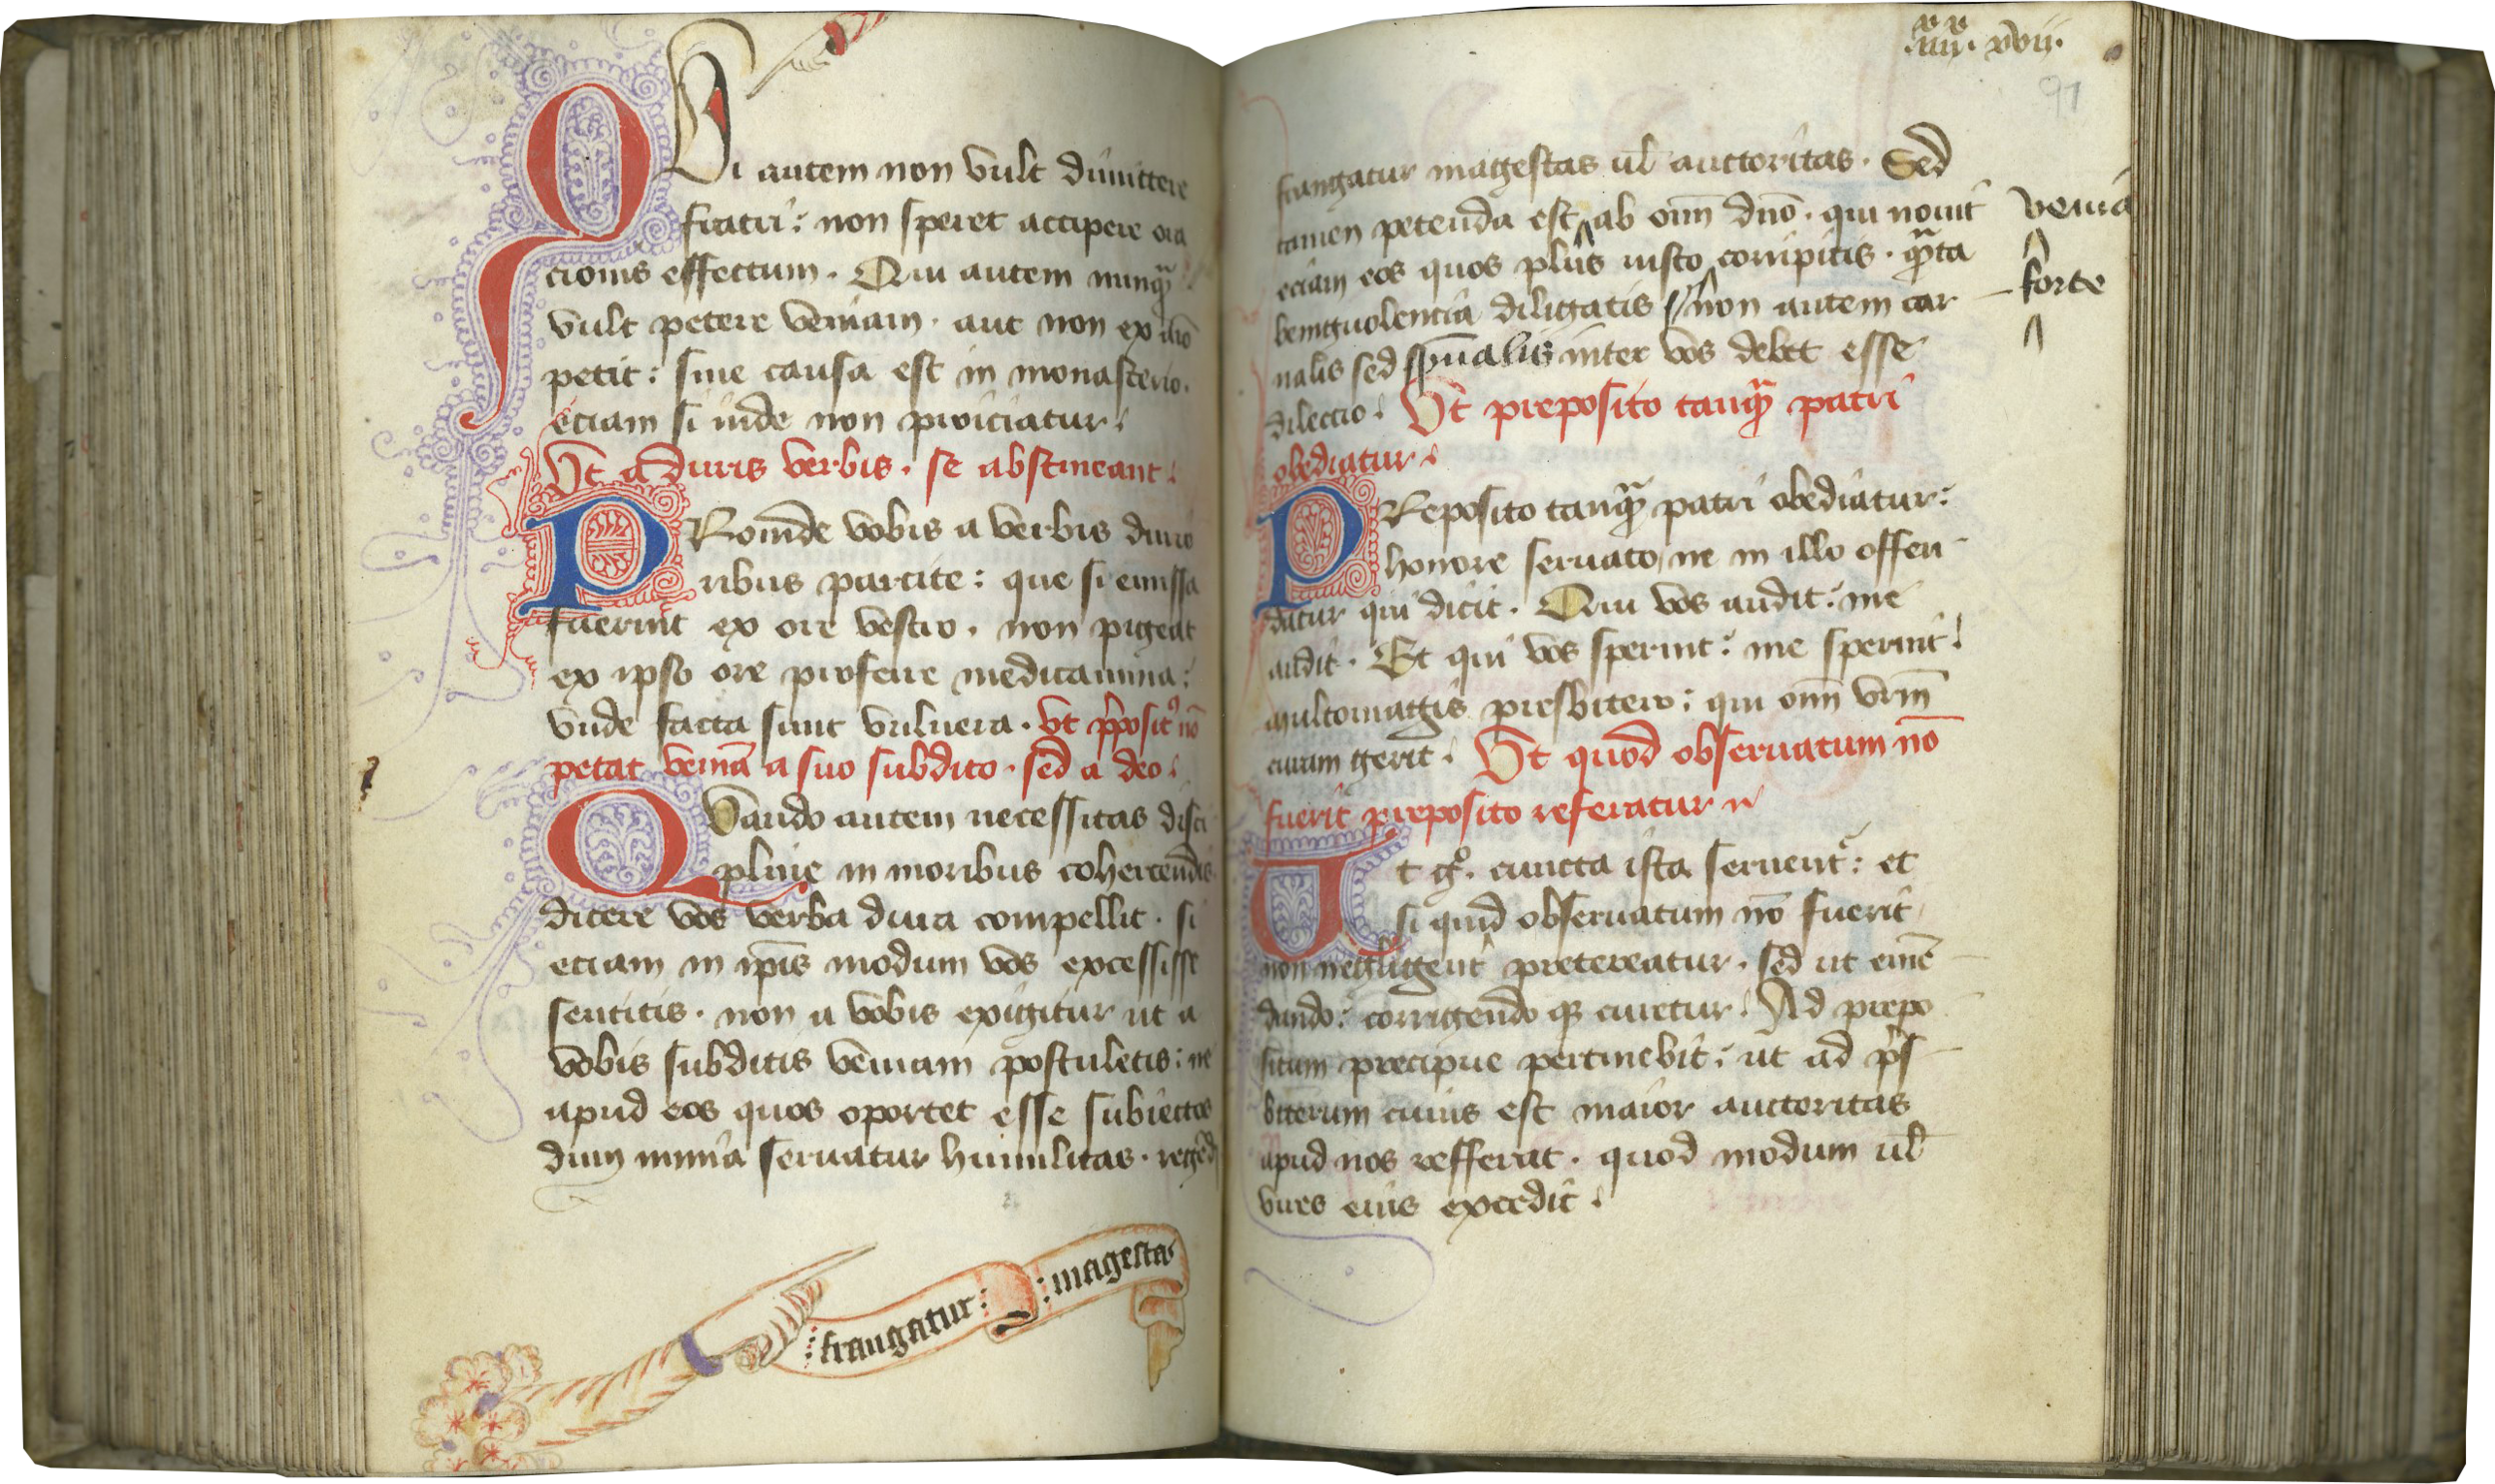 QUi autem non vult dimittere
fratri: non speret accipere ora
cionis effectum. Qui autem nunq̄
vult petere veniam. aut non ex aīo
petit: sine causa est in monasterio.
eciam si inde non proiciatur.
Ut a duris verbis. se abstineant.
PRoīnde vobis a verbis durio
ribus parcite: que si emissa
fuerint ex ore vestro. non pigeat
ex ipso ore proferre medicamina:
vnde facta sunt vulnera. vt p̄posit9 nō
petat veniā a suo subdito. sed a deo.
QVando autem necessitas disci
pline in moribus cohercendis
dicere vos verba dura compellit. si
eciam in ip̄is modum vos excessisse
sentitis. non a vobis exigitur ut a
vobis subditis veniam postuletis: ne
apud eos quos oportet esse subiectos
dum nimia seruatur humilitas. regēd
:frangatur: :magestas
.iiii. xvii.
91
frangatur magestas ul̄ auctoritas. Sed
tamen petenda est ab oīm dn̄o. qui nouit
veniā
eciam eos quos plus iusto corripitis. q̄ta
forte
beniguolencia diligatis non autem car
nalis sed sp̄ualis inter vos debet esse
dilectio. Ut preposito tanq̄ patri
obediatur.
PReposito tanq̄ patri obediatur:
honore seruato, ne in illo offen
datur qui dicit. Qui vos audit: me
audit. Et qui vos spernit: me spernit.
multomagis presbitero: qui oīm vr̄m
curam gerit. Ut quod obseruatum nō
fuerit preposito referatur
Ut g°. cuncta ista seruent᷑: et
si quid obseruatum nō fuerit
non negligent᷑ pretereatur. sed ut emē
dando: corrigendo q3 curetur. Ad prepo
situm precipue pertinebit: ut ad p̄s
biterum cuius est maior auctoritas
apud nos refferat. quod modum ul̄
vires eius excedit.